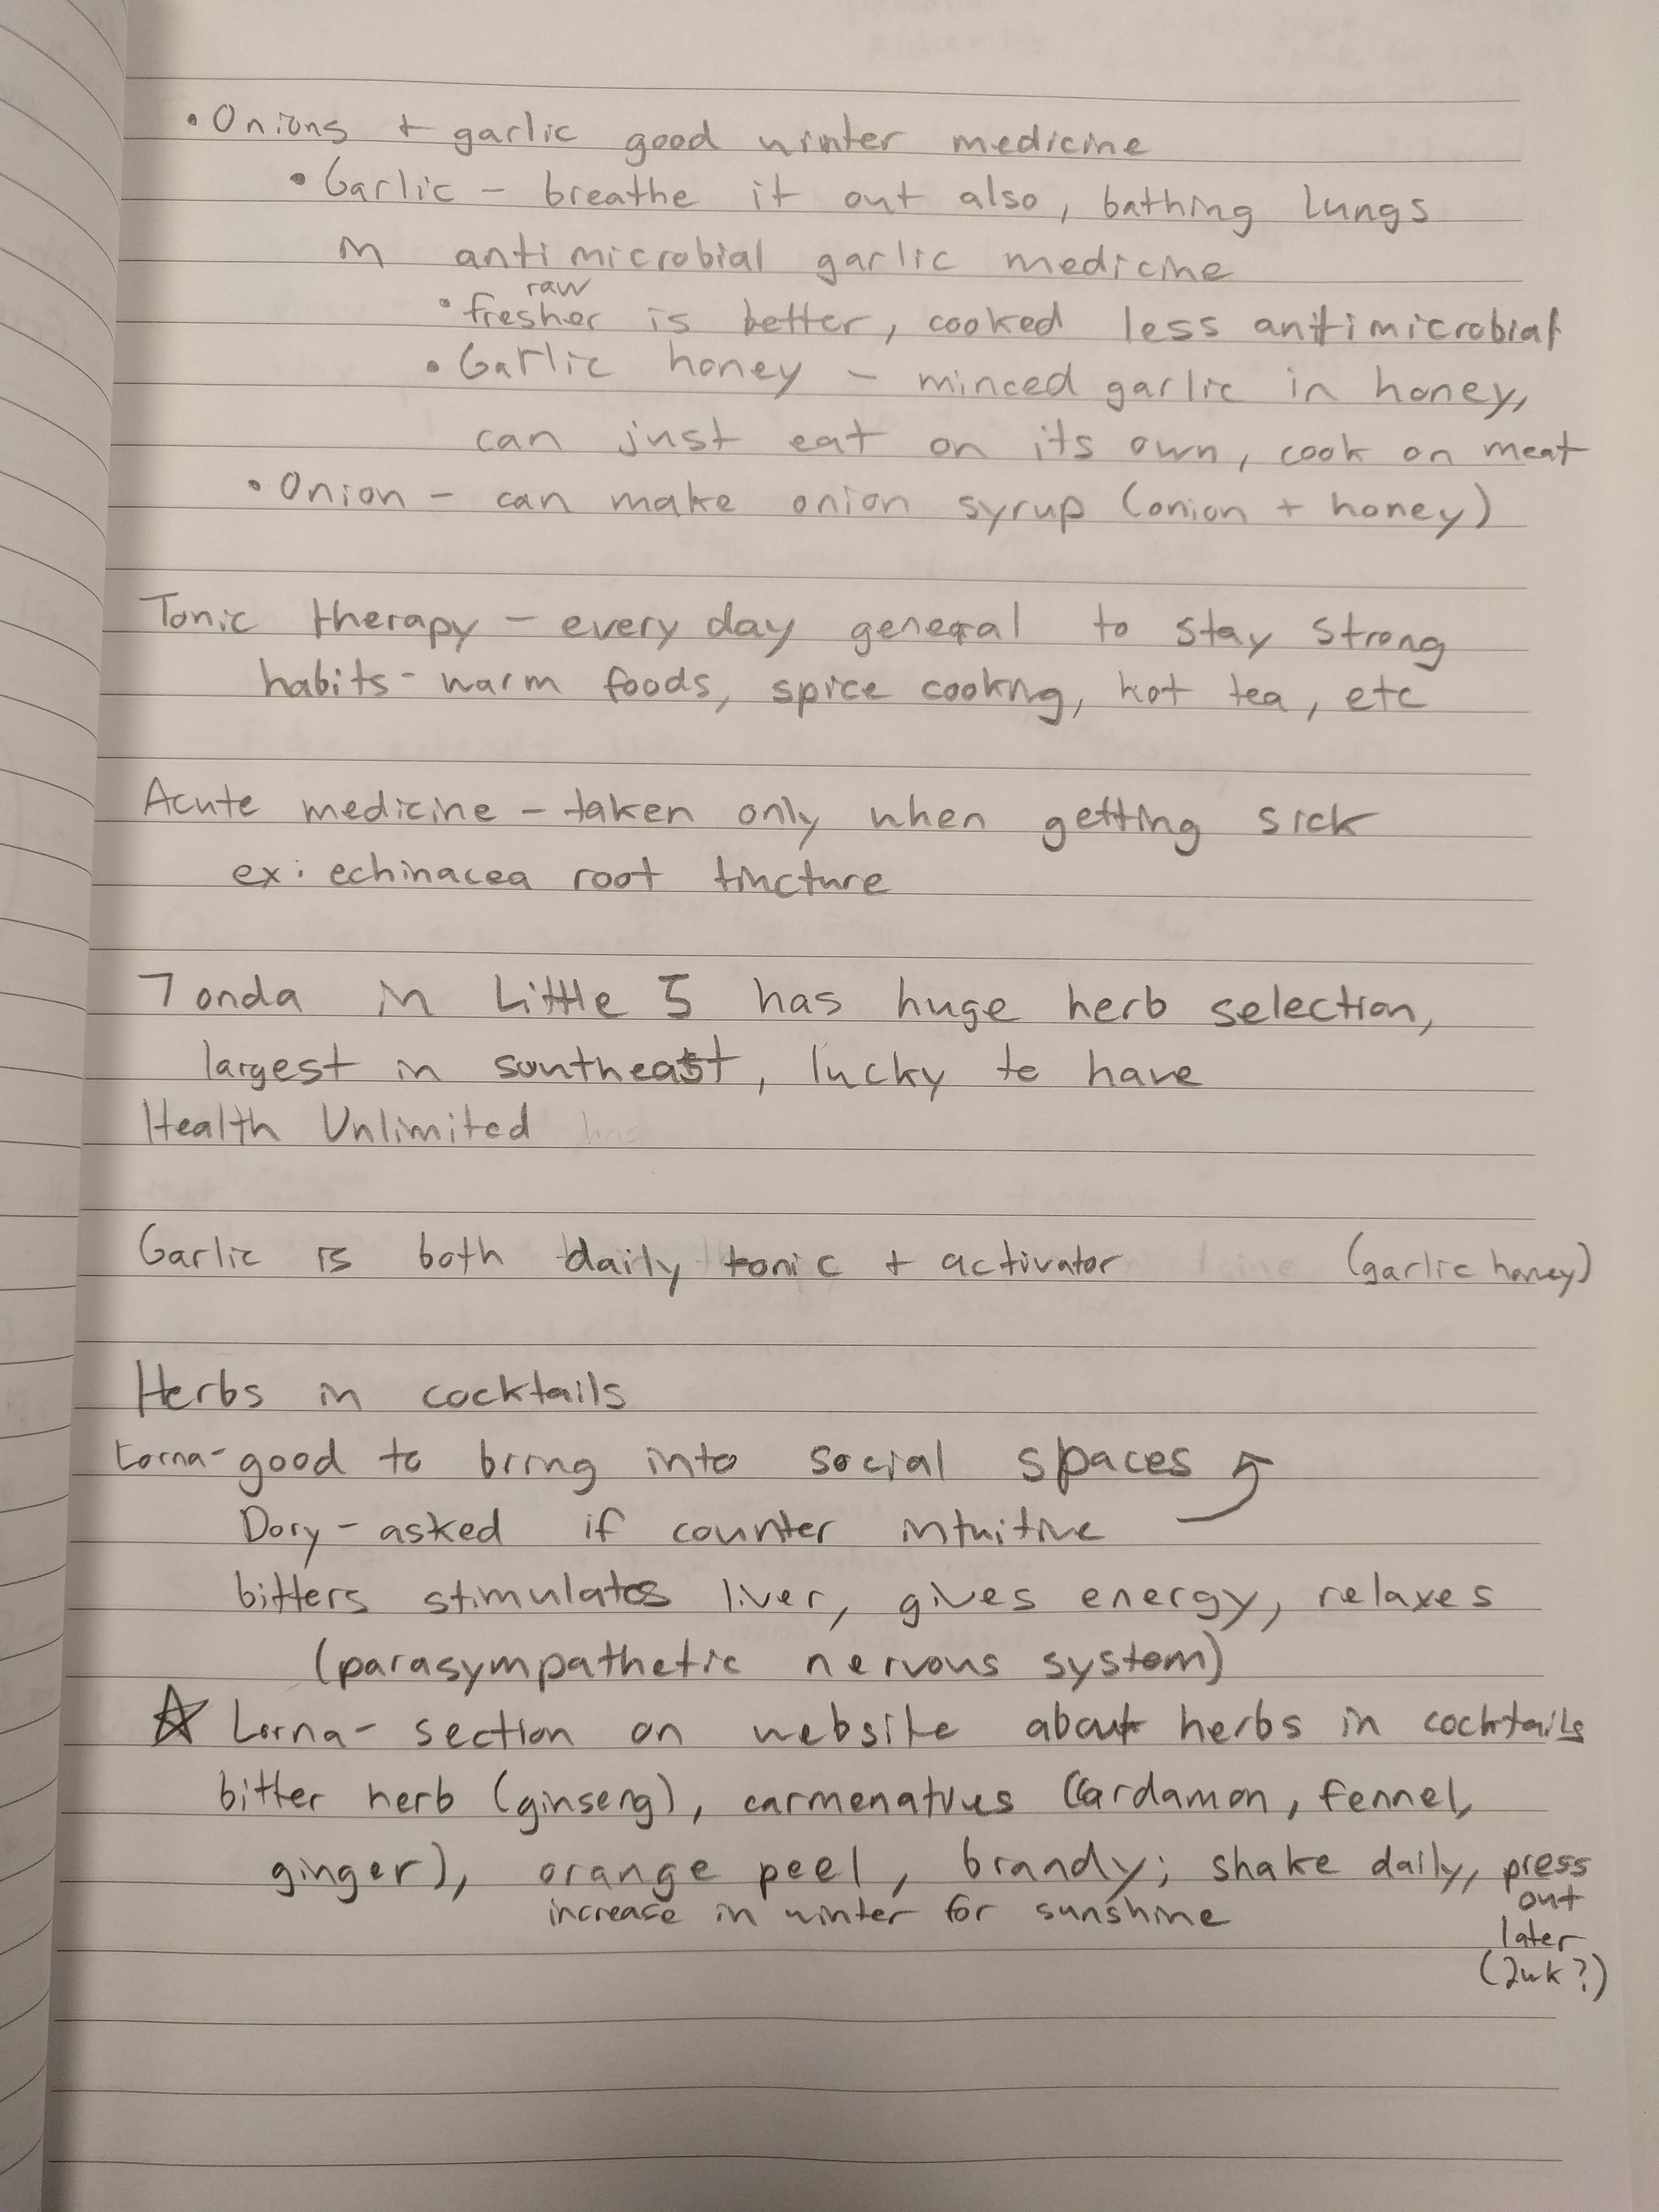 • Onions + garlic good winter medicine
• Garlic - breathe it out also, bathing lungs
in antimicrobial garlic medicine
raw
• fresher is better, cooked less antimicrobial
• Garlic honey - minced garlic in honey,
can just eat on its own, cook on meat
• Onion - can make onion syrup (onion + honey)
Tonic therapy - every day general to stay strong
habits - warm foods, spice cooking, hot tea, etc
Acute medicine - taken only when getting sick
ex: echinacea root tincture
7 onda in Little 5 has huge herb selection,
largest in southeast, lucky to have
Health Unlimited has
Garlic is both daily tonic + activator (garlic honey)
Herbs in cocktails
Lorna - good to bring into social spaces
Dory - asked if counter intuitive
bitters stimulates liver, gives energy, relaxes
(parasympathetic nervous system)
☆ Lorna - section on website about herbs in cocktails
bitter herb (ginseng), carmenatives (Cardamon, fennel,
ginger), orange peel, brandy; shake daily, press
out
increase in winter for sunshine
later
(2wk?)